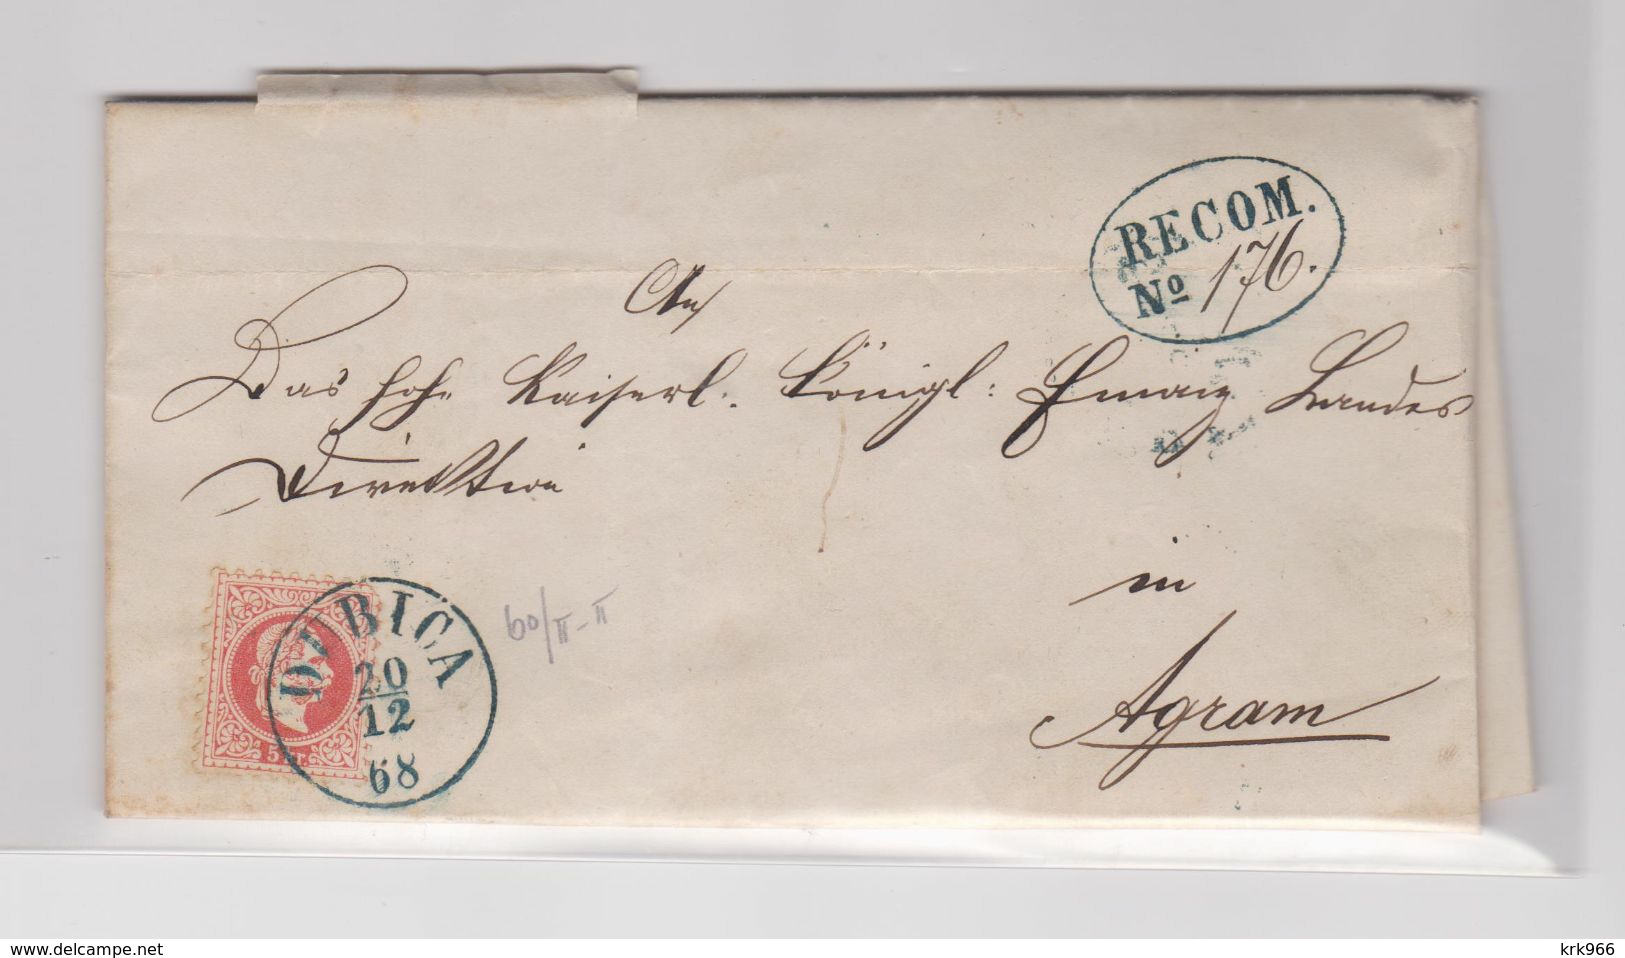 RECOM.
No 176.
An
Das hohe Kaiserl. Königl: Finanz Landes
Direktion
in
Agram
DUBICA
20
12
68
5 kr.
60/II-II
www.delcampe.net
krk966